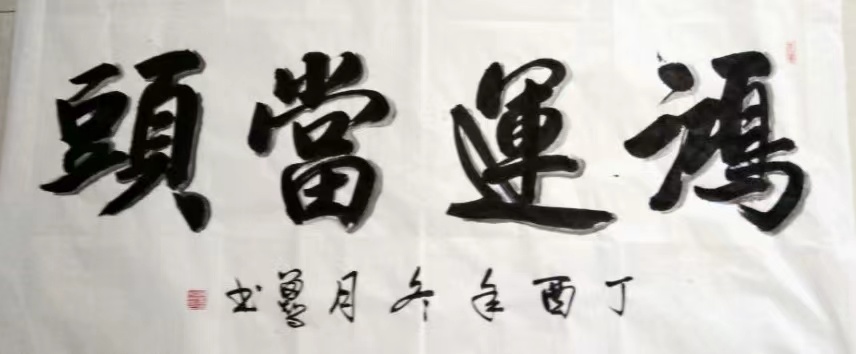 鴻運當頭
丁酉年冬月書